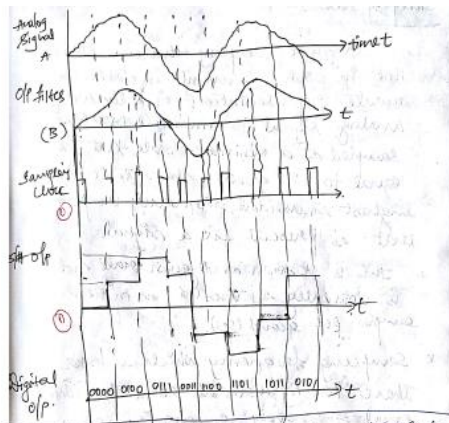 Analog
Signal
A
time t
O/P filter
(B)
t
Sampling
Clock
S/H O/P
t
Digital
O/P.
0000 0100 0111 0011 1100 1101 1011 0101
t